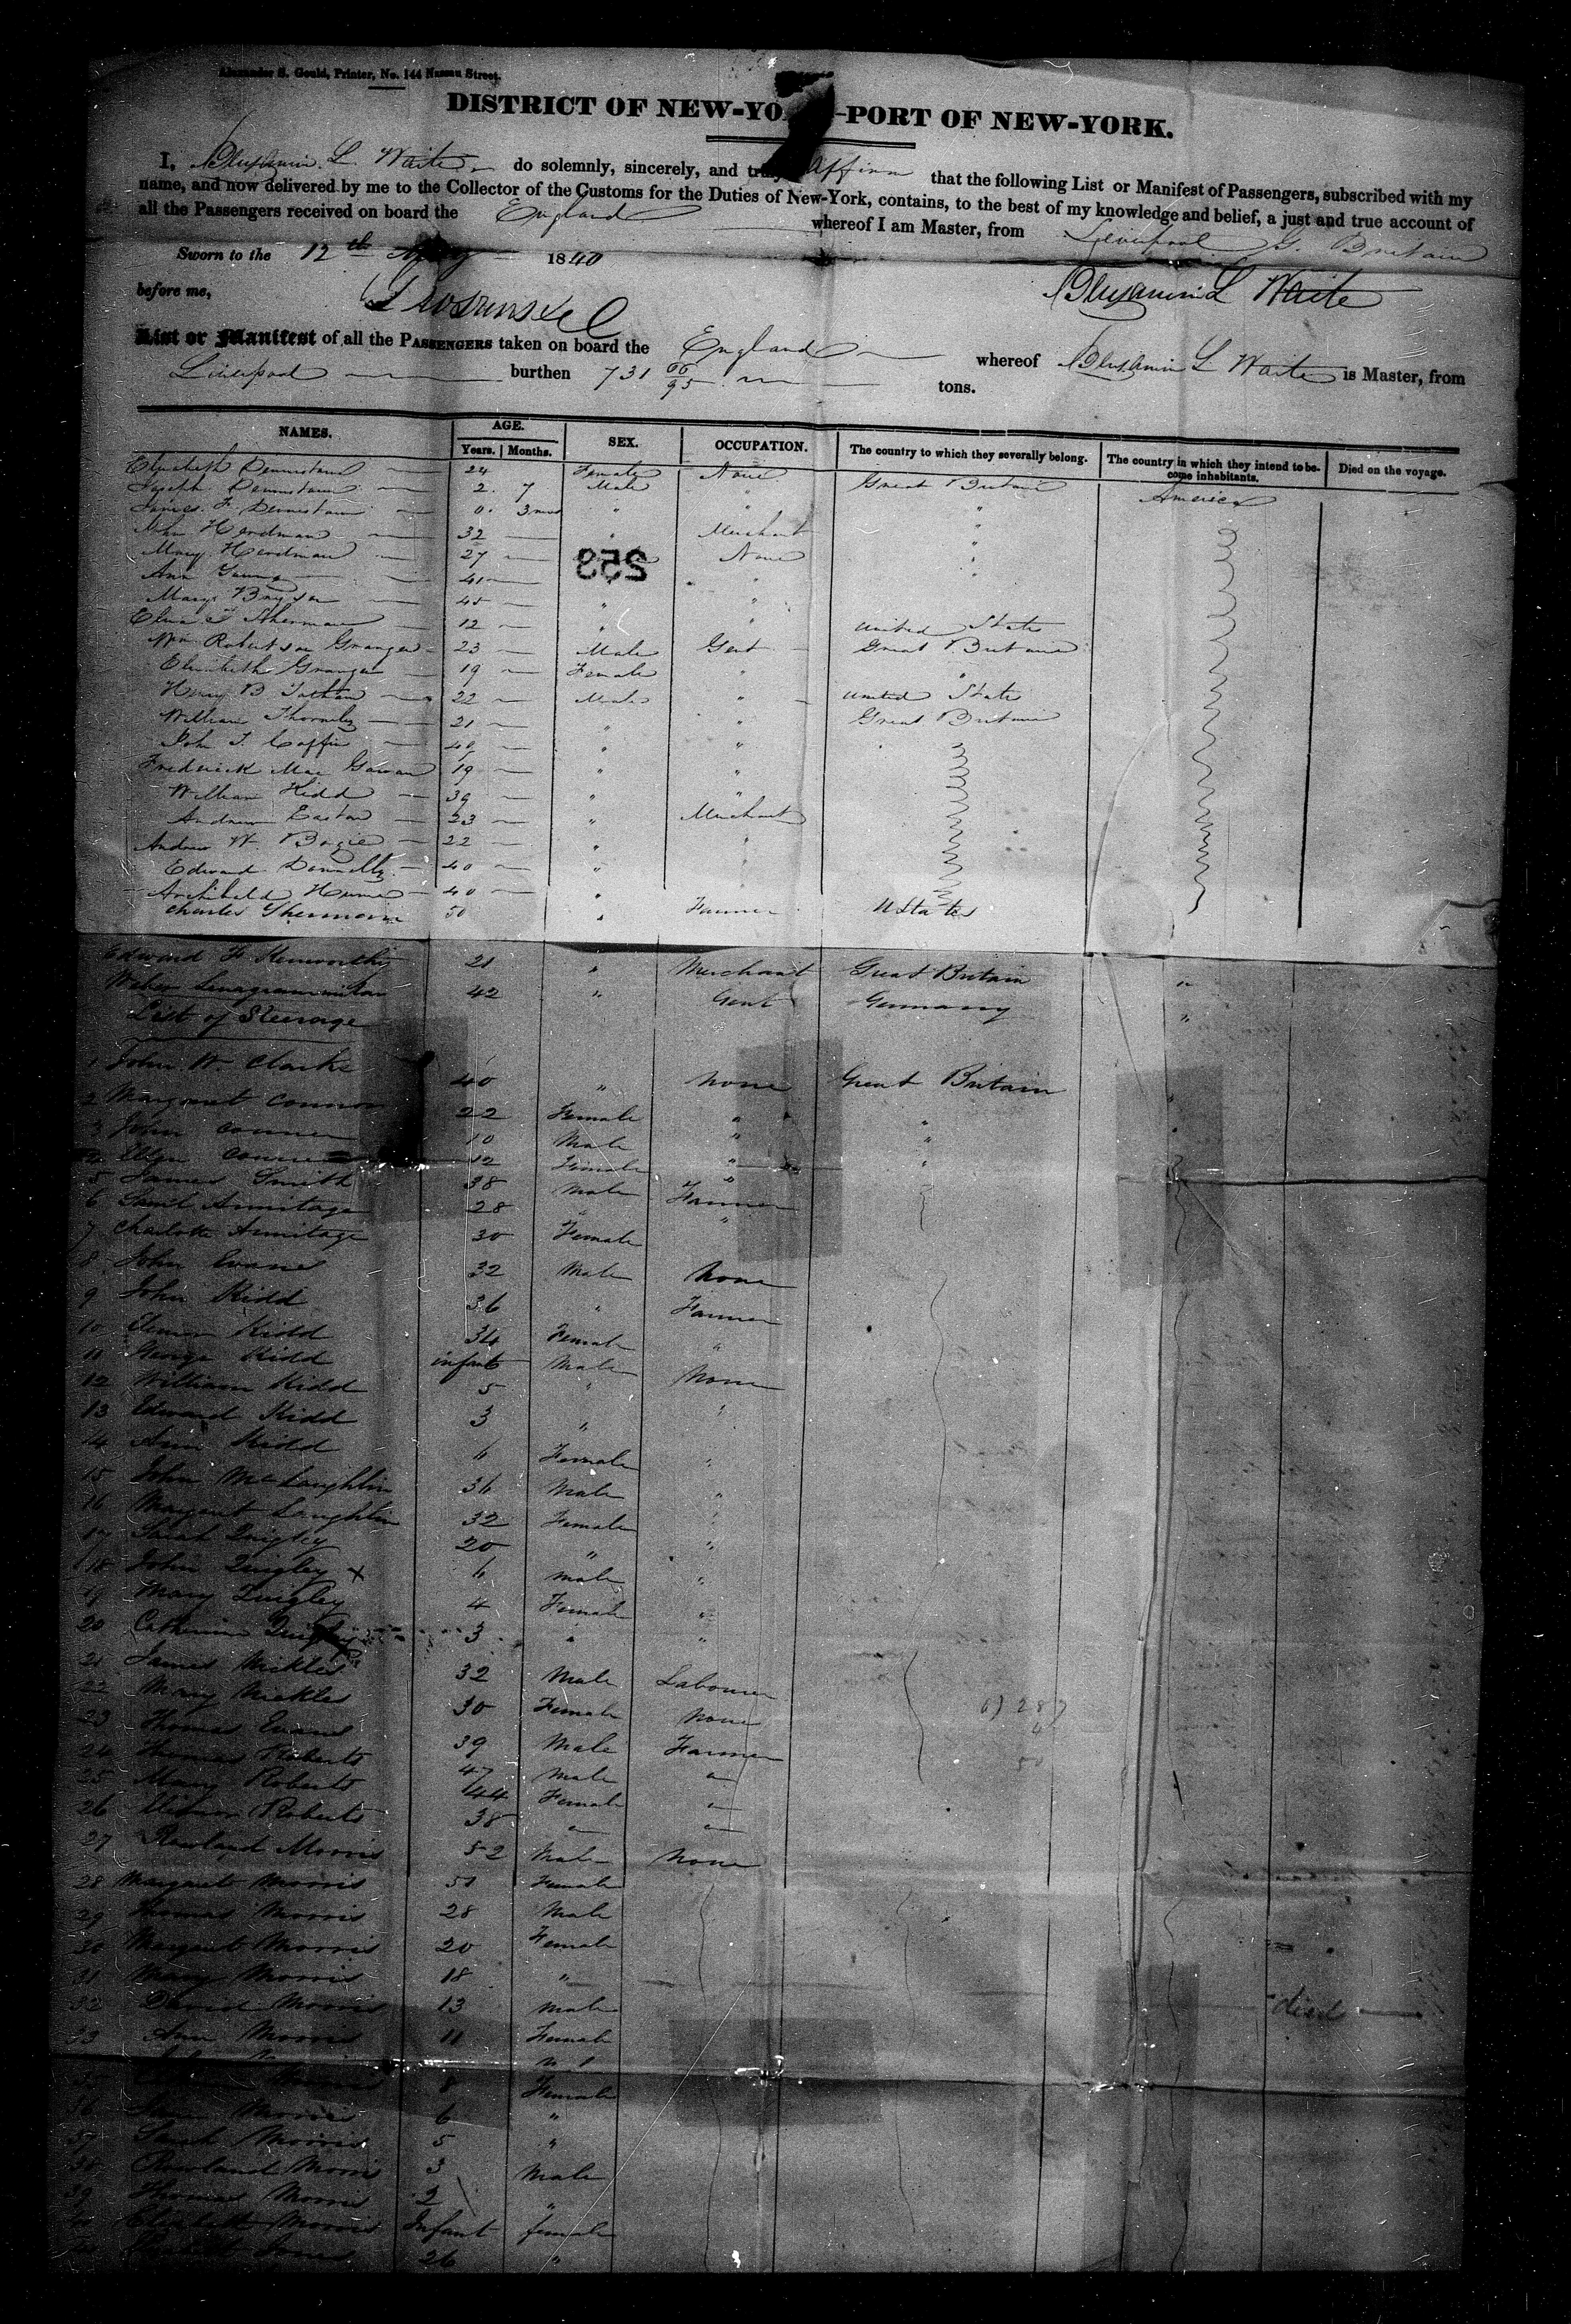 Alexander S. Gould, Printer, No. 144 Nassau Street.
DISTRICT OF NEW-YO -PORT OF NEW-YORK.
I, Benjamin L Waite do solemnly, sincerely, and truly Affirm that the following List or Manifest of Passengers, subscribed with my
name, and now delivered by me to the Collector of the Customs for the Duties of New-York, contains, to the best of my knowledge and belief, a just and true account of
all the Passengers received on board the England whereof I am Master, from Liverpool G. Britain
Sworn to the 12th 1840
before me, Benjamin L Waite
List or Manifest of all the PASSENGERS taken on board the England whereof Benjamin L Waite is Master, from
Liverpool burthen 731 66/95 tons.
NAMES. AGE. Years. Months. SEX. OCCUPATION. The country to which they severally belong. The country in which they intend to become inhabitants. Died on the voyage.
Elizabeth 24 Female None Great Britain America
Joseph 2 7 Male "
James F. 0 3 mos " " "
John Herdman 32 " Merchant "
Mary Herdman 27 None "
258
Ann 41 " "
Mary Bryson 45 " "
Eliza Sherman 12 " " United States
Wm Robertson Granger 23 Male Gent Great Britain
Elizabeth Granger 19 Female " "
Henry B 22 Male " United States
William Thornely 21 " " Great Britain
John T. Coffin 40 " "
Fredrick Mac Gowan 19 " "
William Kidd 39 " "
Andrew Easton 23 " Merchant
Andrew W. Bogie 22 " "
Edward Donnelly 40 "
Archibald Hume 40 "
Charles Sherman 50 " Farmer U States
Edward F Kenworthy 21 " Merchant Great Britain "
42 " Gent Germany "
List of Steerage
1 John W. Clarke 40 " none Great Britain "
2 Margaret Connor 22 Female " " "
3 John Conner 10 Male " "
Ellen Conner 12 Female " "
5 James Smith 38 Male Farmer
6 Saml Armitage 28 " "
7 Charlotte Armitage 30 Female
8 John Evans 32 Male None
9 John Kidd 36 " Farmer
10 Elenor Kidd 34 Female "
11 George Kidd infant Male None
12 William Kidd 5 " "
13 Edward Kidd 3 "
14 Ann Kidd 6 Female "
15 John McLaughlin 36 Male "
16 Margaret Laughlin 32 Female "
17 Sarah Quigley 20 " "
18 John Quigley x 6 male "
19 Mary Quigley 4 Female "
20 Catherine Quigley 3 " "
21 James Mickles 32 Male Labourer
22 Mary Mickles 30 Female None
23 Thomas Evans 39 Male Farmer
24 Thomas Roberts 47 male "
25 Mary Roberts 44 Female "
26 Elienor Roberts 38 " "
27 Rowland Morris 52 Male None
28 Margaret Morris 51 Female
29 Thomas Morris 28 Male
30 Margaret Morris 20 Female
31 Mary Morris 18 "
32 David Morris 13 male died
33 Ann Morris 11 Female
Morris 8 Female
36 Morris 6 "
37 Sarah Morris 5 "
38 Rowland Morris 3 Male
39 Thomas Morris 2 "
Elizabeth Morris Infant female
Jones 26 "